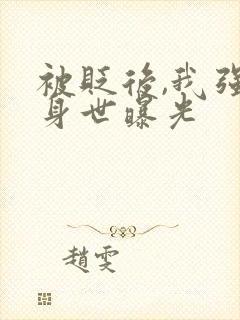 被贬後,我强
身世曝光
趙雯